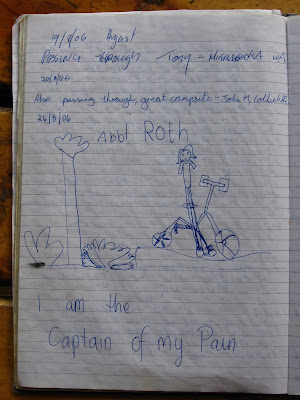 19/8/06 August
Passing through Tony - WA
20/8/06
Also passing through, great campsite - John M,
26/8/06
Abbl ROTH
I am the
Captain of my Pain